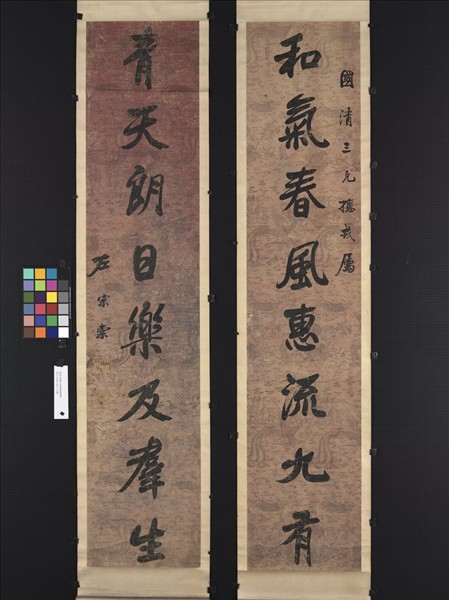 國清三兄總戎屬
和氣春風惠流九有
青天朗日樂及羣生
左宗棠